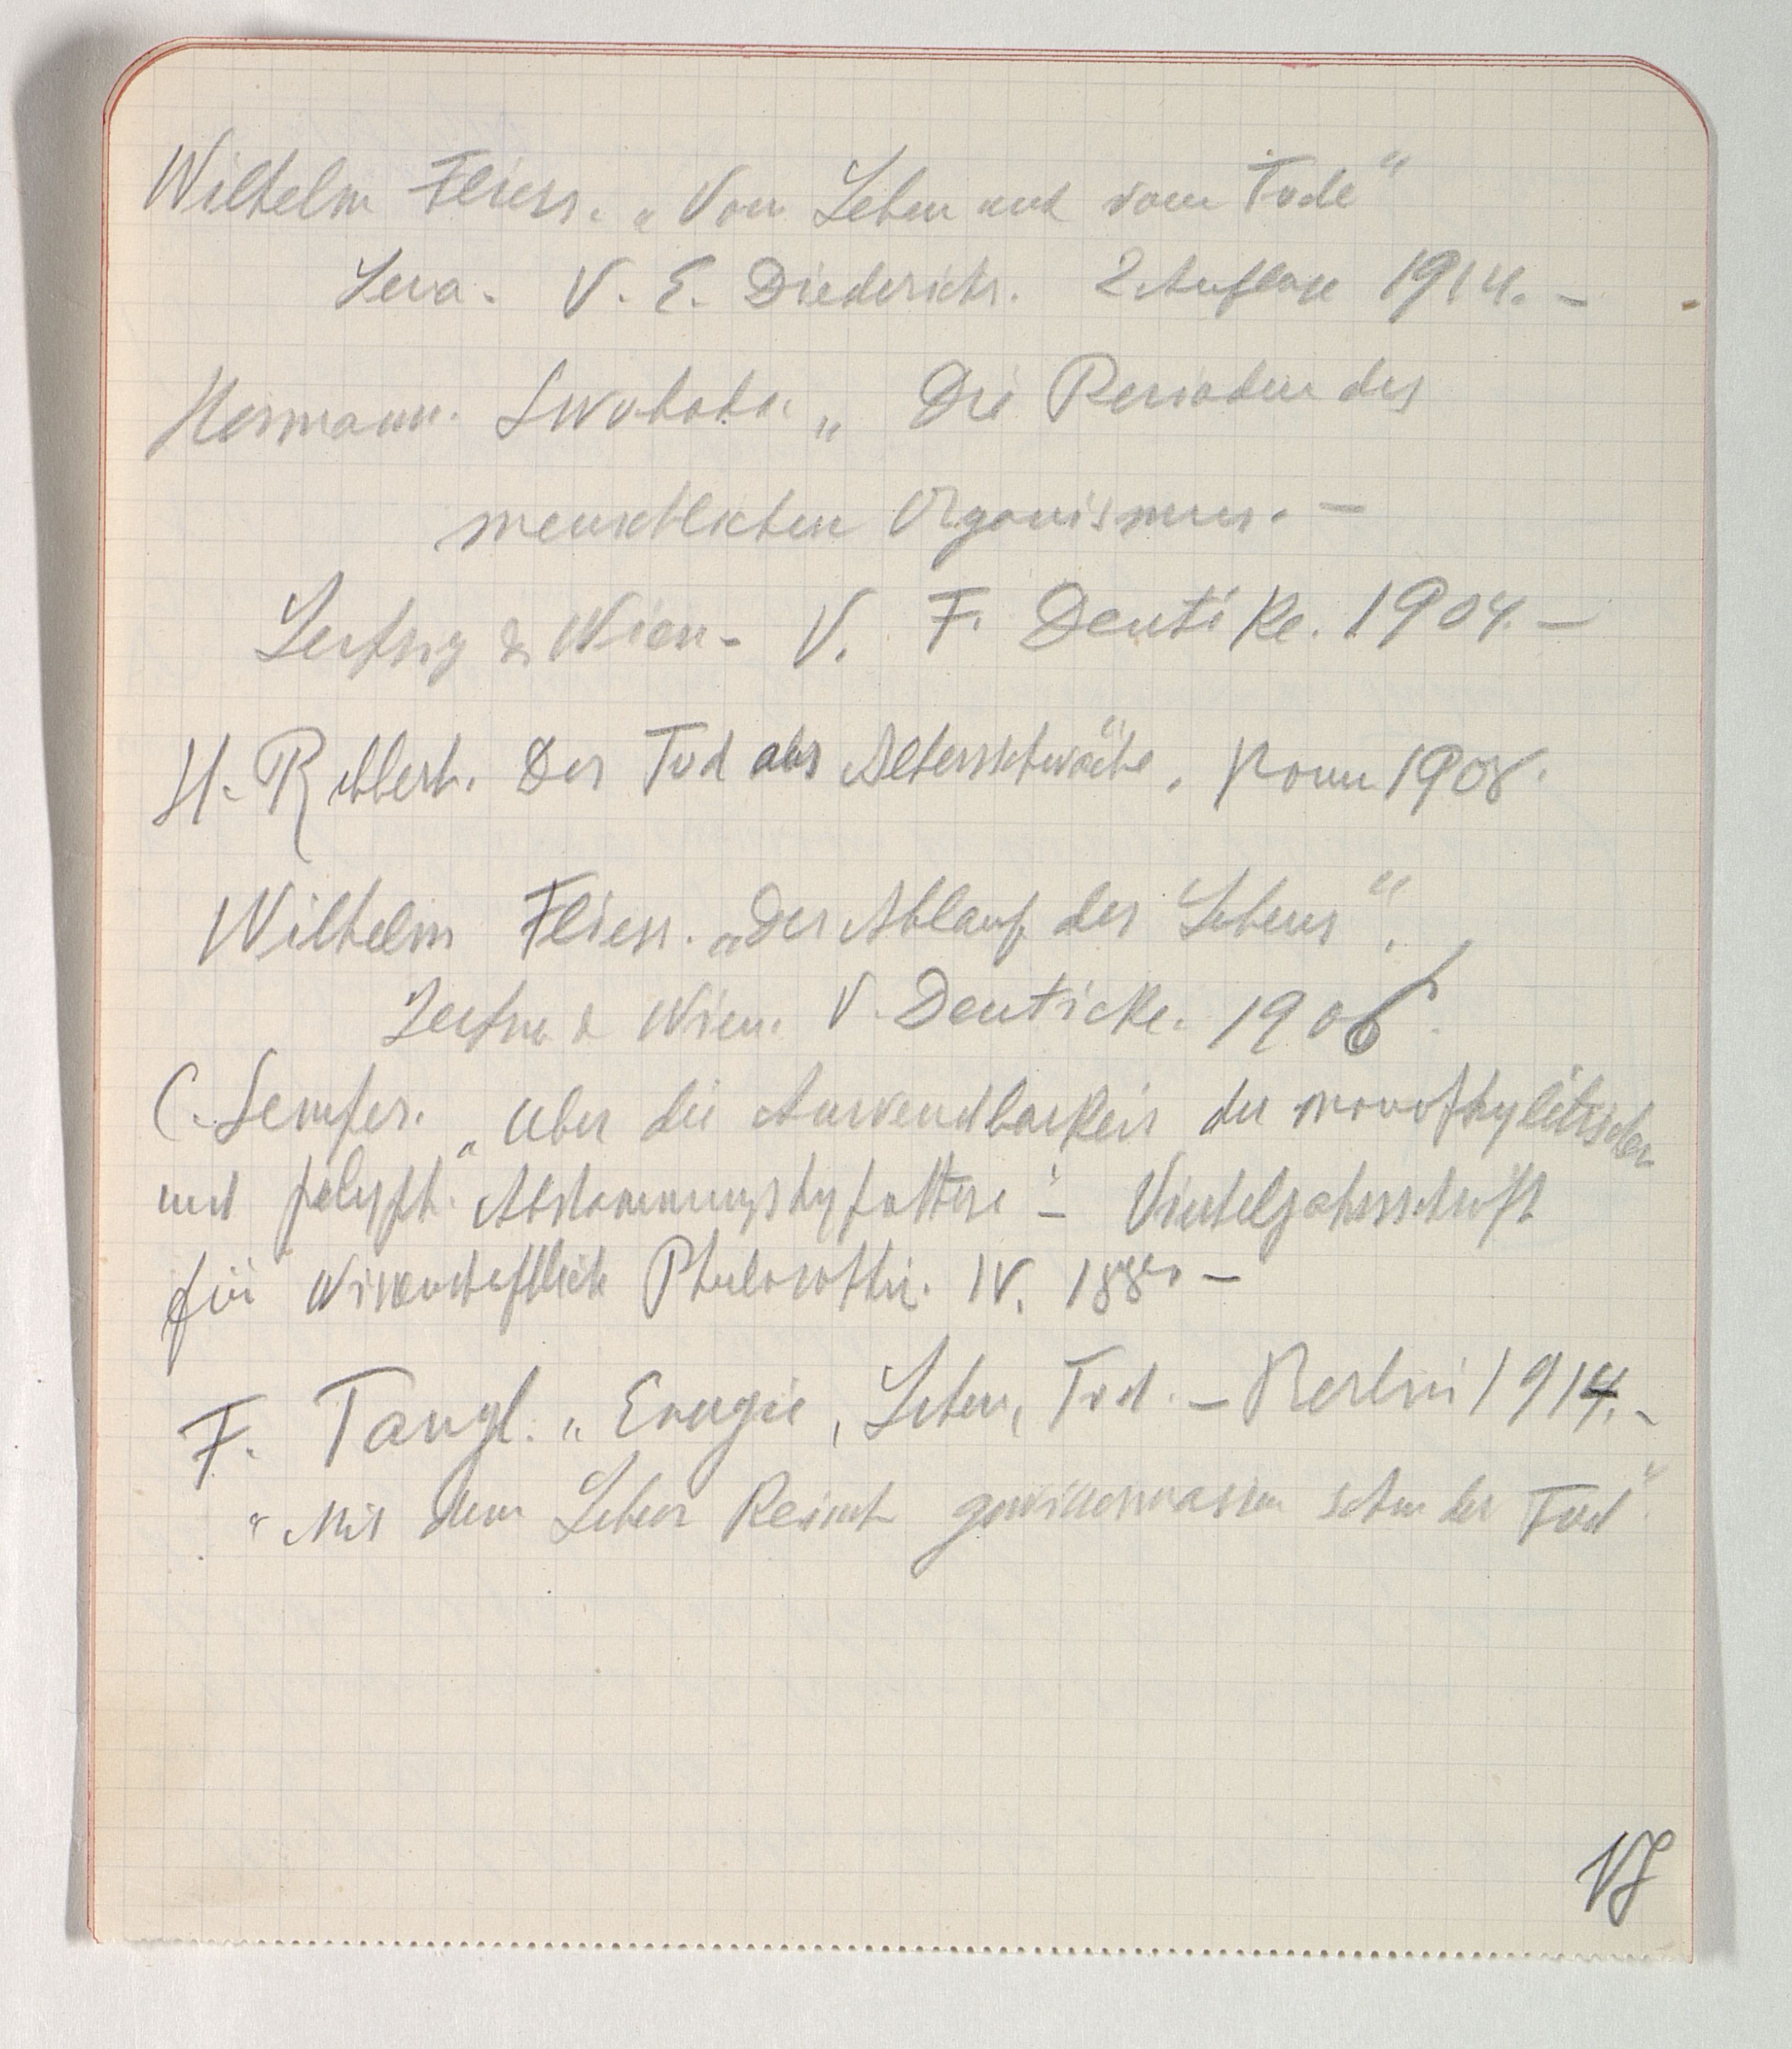 Wilhelm Fliess. „Vom Leben und vom Tode“
Jena. V. E. Diederichs. 2 Auflage 1914. –
Hermann. Swoboda. „Die Perioden des
menschlichen Organismus. –
Leipzig & Wien – V. F. Deutike. 1904. –
H. Ribbert. Der Tod aus Altersschwäche“. Bonn 1908.
Wilhelm Fliess. „Der Ablauf des Lebens“.
Leipzig & Wien. V. Deuticke. 1906.
C. Semper. „Uber die Anwendbarkeit der monophyletischen
und polyph. Abstammungshypothese“ – Vierteljahrsschrift
für Wissenschaftliche Philosophie. IV. 1880 –
F. Tangl. „Energie, Leben, Tod. – Berlin 1914. –
„Mit dem Leben keimt gewissermassen schon der Tod“.